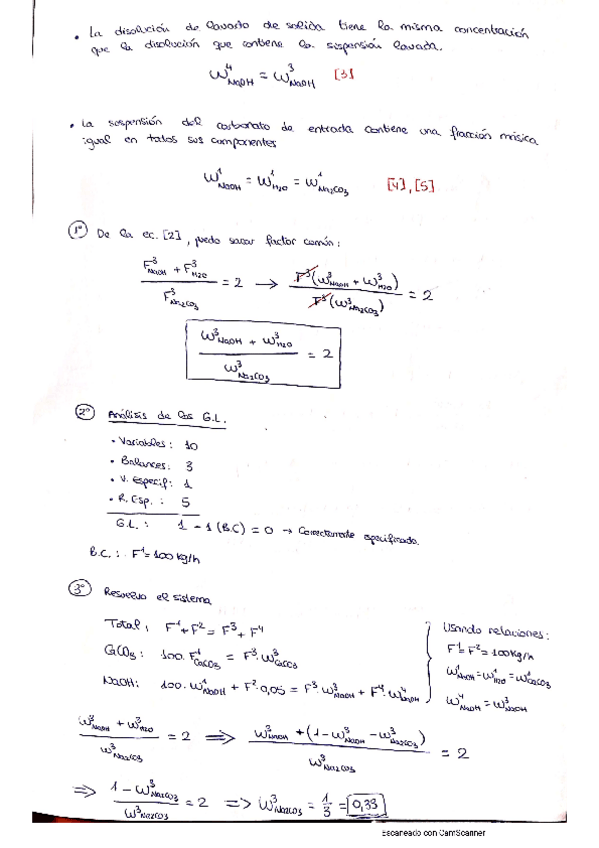 • La disolución de lavado de salida tiene la misma concentración
que la disolución que contiene la suspensión lavada.
W⁴NaOH = W³NaOH [3]
• La suspensión del carbonato de entrada contiene una fracción másica
igual en todos sus componentes
W¹NaOH = W¹H2O = W¹Na2CO3 [4], [5]
1º De la ec. [2], puedo sacar factor común:
(F³NaOH + F³H2O) / F³Na2CO3 = 2 → F³(W³NaOH + W³H2O) / F³(W³Na2CO3) = 2
(W³NaOH + W³H2O) / W³Na2CO3 = 2
2º Análisis de los G.L.
• Variables: 10
• Balances: 3
• V. Especif: 1
• R. Esp.: 5
G.L.: 1 - 1 (B.C) = 0 → Correctamente especificado.
B.C.: F¹=100 kg/h
3º Resuelvo el sistema
Total: F¹+F² = F³+F⁴
CaCO3: 100·F¹CaCO3 = F³·W³CaCO3
NaOH: 100·W¹NaOH + F²·0,05 = F³·W³NaOH + F⁴·W⁴NaOH
Usando relaciones:
F¹=F²=100kg/h
W¹NaOH=W¹H2O=W¹CaCO3
W⁴NaOH=W³NaOH
(W³NaOH + W³H2O) / W³Na2CO3 = 2 ⟹ (W³NaOH + (1-W³NaOH-W³Na2CO3)) / W³Na2CO3 = 2
⟹ (1-W³Na2CO3) / W³Na2CO3 = 2 ⟹ W³Na2CO3 = 1/3 = 0,33
Escaneado con CamScanner